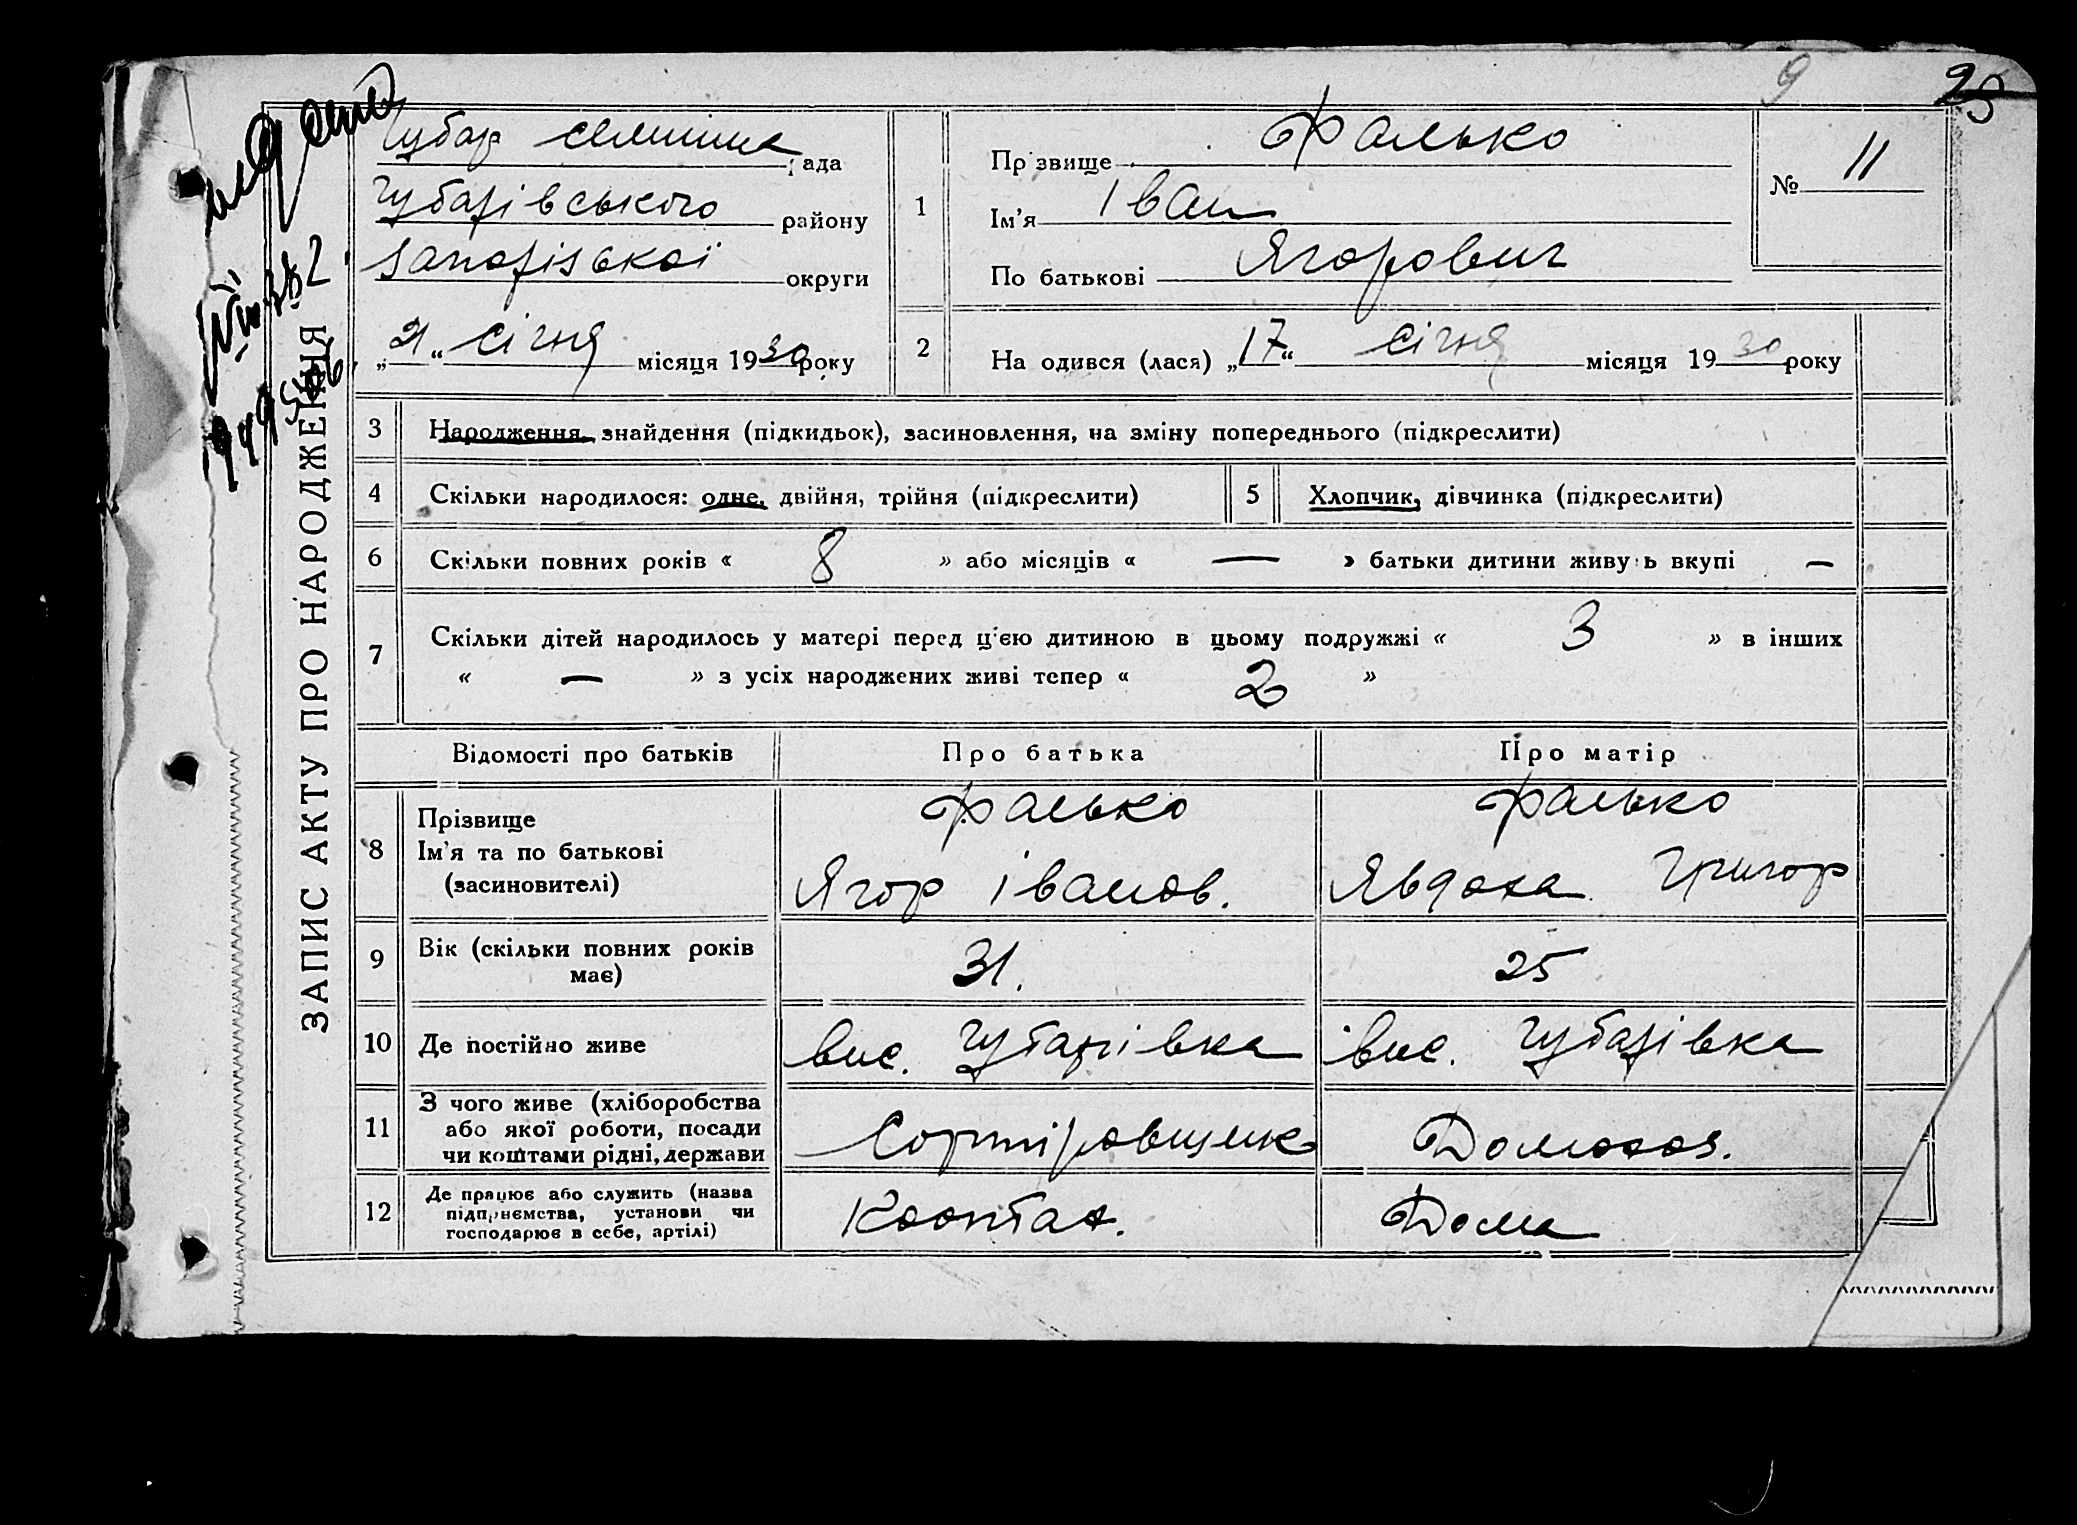 9 25
Губар селищна рада
Губарівського району
Запорізької округи
„21“ січня місяця 1930 року
1
Прізвище Фалько
Ім'я Іван
По батькові Ягорович
№ 11
2
На одився (лася) „17“ січня місяця 1930 року
ЗАПИС АКТУ ПРО НАРОДЖЕННЯ
3 Народження, знайдення (підкидьок), засиновлення, на зміну попереднього (підкреслити)
4 Скільки народилося: одне, двійня, трійня (підкреслити) 5 Хлопчик, дівчинка (підкреслити)
6 Скільки повних років « 8 » або місяців « — » батьки дитини живуть вкупі —
7 Скільки дітей народилось у матері перед ц'єю дитиною в цьому подружжі « 3 » в інших
« — » з усіх народжених живі тепер « 2 »
Відомості про батьків Про батька Про матір
8 Прізвище
Ім'я та по батькові
(засиновителі)
Фалько
Ягор Іванов.
Фалько
Явдоха Григор
9 Вік (скільки повних років
має)
31. 25
10 Де постійно живе вис. Губарівка вис. Губарівка
11 З чого живе (хліборобства
або якої роботи, посади
чи коштами рідні, держави
Сортіровщик Домохоз.
12 Де працює або служить (назва
підприємства, установи чи
господарює в себе, артілі)
Кооптах. Дома